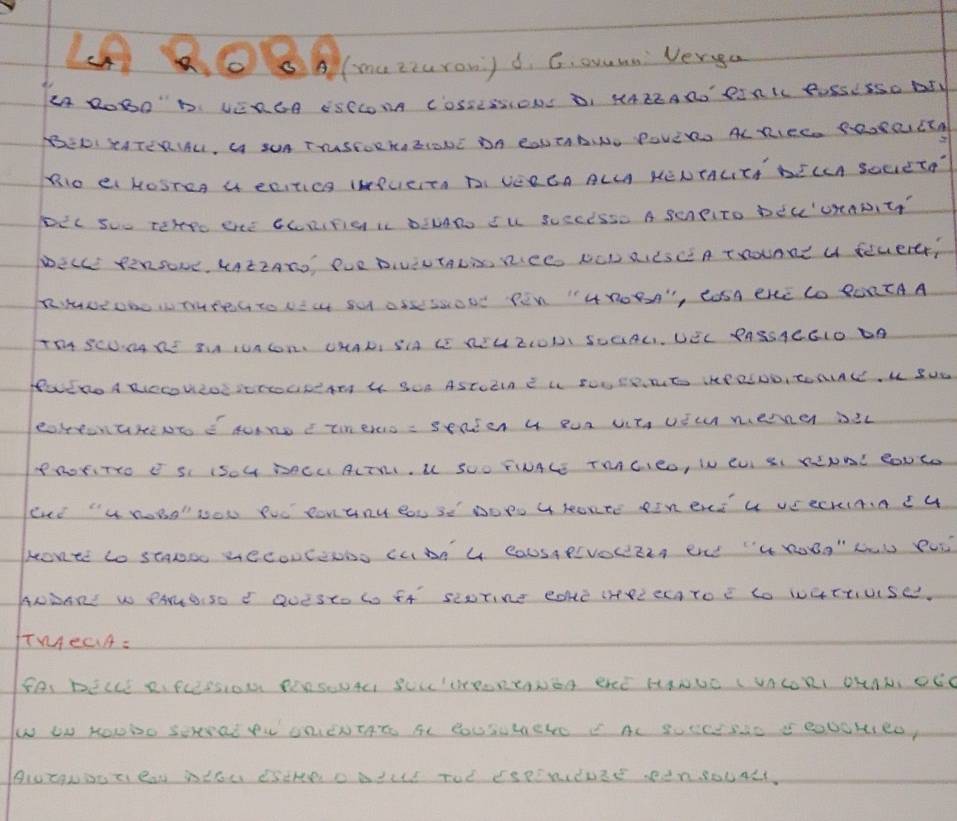 LA ROBA (mazzaroni) di Giovanni Verga
"LA ROBA" DI VERGA ESPLORA L'OSSESSIONE DI MAZZARÓ PER IL POSSESSO DEI
BENI MATERIALI. LA SUA TRASFORMAZIONE DA CONTADINO POVERO AL RICCO PROPRIETA
RIO CI MOSTRA LA CRITICA IMPLICITA DI VERGA ALLA MENTALITÁ DELLA SOCIETÁ
DEL SUO TEMPO CHE GLORIFICA IL DENARO E IL SUCCESSO A SCAPITO DELL'UMANITÁ
DELLE PERSONE. MAZZARÓ, PUR DIVENTANDO RICCO NON RIESCE A TROVARE LA FELICITÁ,
RIMANENDO INTRAPPOLATO NELLA SUA OSSESSIONE PER "LA ROBA", COSA CHE LO PORTA A
TRASCURARE SIA I VALORI UMANI SIA LE RELAZIONI SOCIALI. NEL PASSAGGIO DA
POVERO A RICCO VIENE SOTTOLINEATA LA SUA ASTUZIA E IL SUO SPIRITO IMPRENDITORIALE. IL SUO
COMPORTAMENTO É AVARO E TIRCHIO = SPRECA LA SUA VITA NELLA RICERCA DEL
PROFITTO E SI ISOLA DAGLI ALTRI. IL SUO FINALE TRAGICO, IN CUI SI RENDE CONTO
CHE "LA ROBA" NON PUÓ PORTARLA CON SÉ DOPO LA MORTE PERCHÉ LA VECCHIAIA E LA
MORTE LO STANNO RACCOGLIENDO GLI DÁ LA CONSAPEVOLEZZA CHE "LA ROBA" NON PUÓ
ANDARE IN PARADISO E QUESTO LO FÁ SENTIRE COME IMPIECATO E LO INCATTIVISCE.
TRACCIA:
FAI DELLE RIFLESSIONI PERSONALI SULL'IMPORTANZA CHE HANNO I VALORI UMANI OGG
IN UN MONDO SEMPRE PIÚ ORIENTATO AL CONSUMISMO E AL SUCCESSO ECONOMICO,
AIUTANDOTI CON DEGLI ESEMPI O DELLE TUE ESPERIENZE PERSONALI.